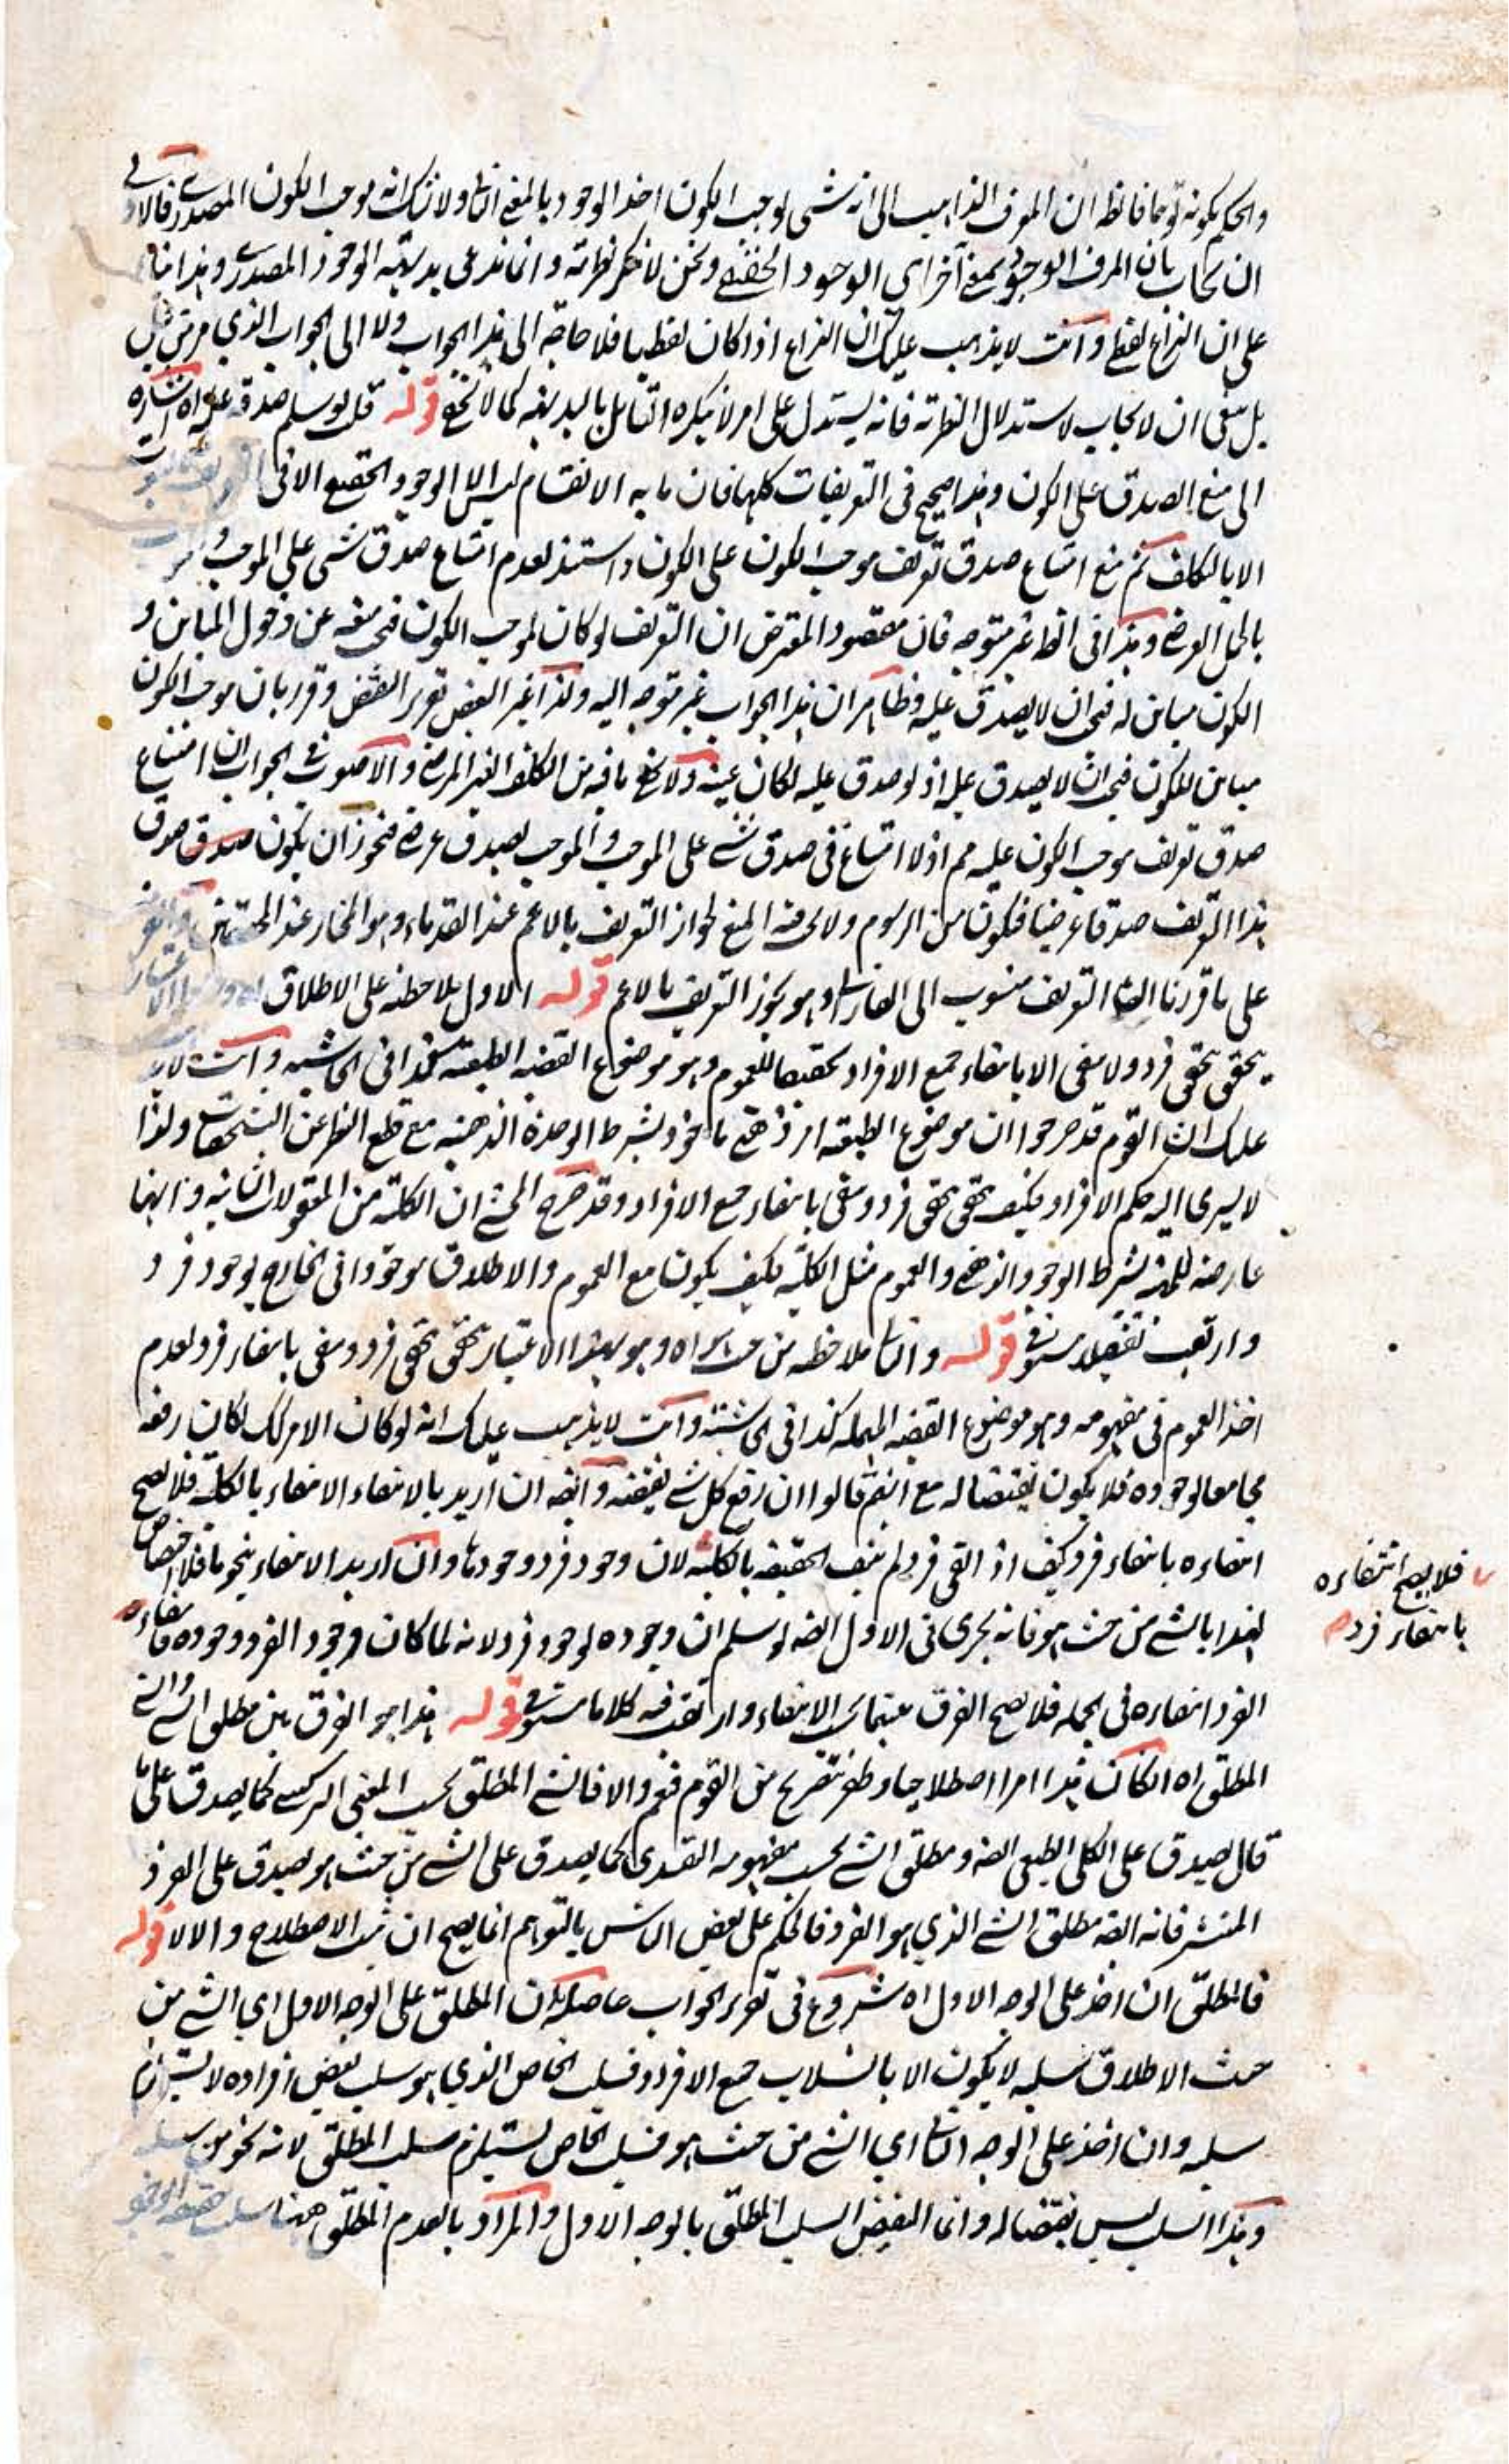 والحكم بكونه توهما فانظر ان المعرف الذاهب الى انه شئ لوجب الكون اخذ الوجود بالمعنى الثانى ولا شك انه لوجب الكون المصدرى فالاولى
ان يجاب بان المعرف الوجود بمعنى آخر اى الوجود الحقيقى ونحن لا ننكر نظريته وانما ندعى بديهية الوجود المصدرى وهذا بناء
على ان النزاع لفظى وانت لا يذهب عليك ان النزاع اذا كان لفظيا فلا حاجة الى هذا الجواب ولا الى الجواب الذي مر من قبل
بل ينبغى ان لا يجاب لاستدلال النظرية فانه يستدل على امر لا ينكره القائل بالبديهية كما لا يخفى قوله قلت لو سلم صدقه عليه اه اشارة
الى منع الصدق على الكون وهذا صحيح فى التعريفات كلها فان ما به الانقسام ليس الا الوجود الحقيقى الا فى
الا بالتكلف ثم منع امتناع صدق تعريف موجب الكون على الكون واستند لعدم امتناع صدق شئ على الموجب و
بالحمل العرضى وهذا فى الظ غير متوجه فان مقصود المعترض ان التعريف لو كان لموجب الكون فيجب منعه عن دخول المباين و
الكون مباين له فيجب ان لا يصدق عليه وظاهر ان هذا الجواب غير متوجه اليه ولذا غير البعض تقرير النقض وقرر بان موجب الكون
مباين للكون فيجب ان لا يصدق عليه اذ لو صدق عليه لكان عينه ولا يخفى ما فيه من التكلف الغير المرضى والاصوب فى الجواب ان امتناع
صدق تعريف موجب الكون عليه مم اذ لا امتناع فى صدق شئ على الموجب والموجب بصدق عرضى فيجوز ان يكون صدق
هذا التعريف صدقا عرضيا فيكون من الرسوم ولا يجب فيه المنع لجواز التعريف بالاعم عند القدماء وهو المختار عند المحققين
على ما قررنا التعريف منسوب الى الفارابى وهو يجوز التعريف بالاعم قوله الاول ملاحظته على الاطلاق
يتحقق بتحقق فرد ولا ينتفى الا بانتفاء جميع الافراد تحقيقا للعموم وهو موضوع القضية الطبعية هكذا فى الحاشية وانت لا يذهب
عليك ان القوم قد صرحوا ان موضوع الطبعية امر ذهنى ماخوذ بشرط الوحدة الذهنية مع قطع النظر عن التشخصات ولذا
لا يسرى اليه حكم الافراد فكيف يتحقق بتحقق فرد وينتفى بانتفاء جميع الافراد وقد صرح المحشى ان الكلية من المعقولات الثانية وانها
عارضة للماهية بشرط الوجود الذهنى والعموم مثل الكلية فكيف يكون مع العموم والاطلاق موجودا فى الخارج بوجود فرد
وارتقب تفصيلا سنوفى قوله والثانى ملاحظته من حيث هو اه وهو بهذا الاعتبار يتحقق بتحقق فرد وينتفى بانتفاء فرد لعدم
اخذ العموم فى مفهومه وهو موضوع القضية المهملة كذا فى الحاشية وانت لا يذهب عليك انه لو كان الامر كك لكان رفعه
مجامعا لوجوده فلا يكون نقيضا له مع انهم قالوا ان رفع كل شئ نقيضه وايضا ان اريد بالانتفاء الانتفاء بالكلية فلا يصح
انتفاءه بانتفاء فرد كيف اذا انتفى فرد لم ينتف الحقيقة بالكلية لان وجود فرد وجودها وان اريد الانتفاء بنحو ما فلا اختصاص
لهذا بالشئ من حيث هو فانه يجرى فى الاول ايضا لو سلم ان وجوده لوجود فرد لانه لما كان وجود الفرد وجوده فانتفاء
الفرد انتفاءه فى الجملة فلا يصح الفرق بينهما فى الانتفاء وارتقب فيه كلاما سنوفى قوله هذا هو الفرق بين مطلق الشئ والشئ
المطلق اه ان كان هذا امرا اصطلاحيا وظفر بتصريح من القوم فنعم والا فالشئ المطلق بحسب المعنى التركيبى كما يصدق على ما
قال يصدق على الكلى الطبيعى ايضا ومطلق الشئ بحسب مفهومه التقييدى كما يصدق على الشئ من حيث هو يصدق على الفرد
المنتشر فانه ايضا مطلق الشئ الذي هو الفرد فالحكم على بعض الناس بالتوهم انما يصح ان ثبت الاصطلاح والا لا قوله
فالمطلق ان اخذ على الوجه الاول اه شروع فى تقرير الجواب حاصله ان المطلق على الوجه الاول اي الشئ من
حيث الاطلاق سلبه لا يكون الا بانسلاب جميع الافراد فسلب الخاص الذي هو سلب بعض افراده لا يستلزم
سلبه وان اخذ على الوجه الثانى اي الشئ من حيث هو فسلب الخاص يستلزم سلب المطلق لانه نحو من سلبه
وهذا السلب ليس نقيضا له وانما النقيض السلب المطلق بالوجه الاول والمراد بالعدم المطلق ههنا سلب حقيقة الوجود
فلا يصح انتفاءه
بانتفاء فرد